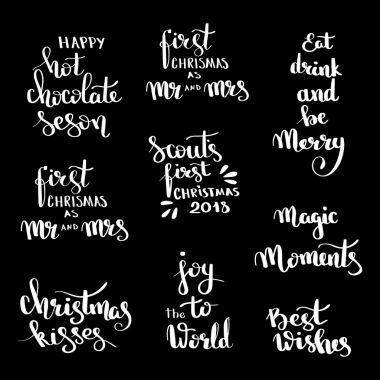 HAPPY
hot
chocolate
seson
first
CHRISMAS
AS
Mr AND Mrs
Eat
drink
and
be
Merry
first
CHRISMAS
AS
Mr AND Mrs
Scouts
first
CHRISTMAS
2018
Magic
Moments
Christmas
kisses
joy
to
the World
Best
Wishes